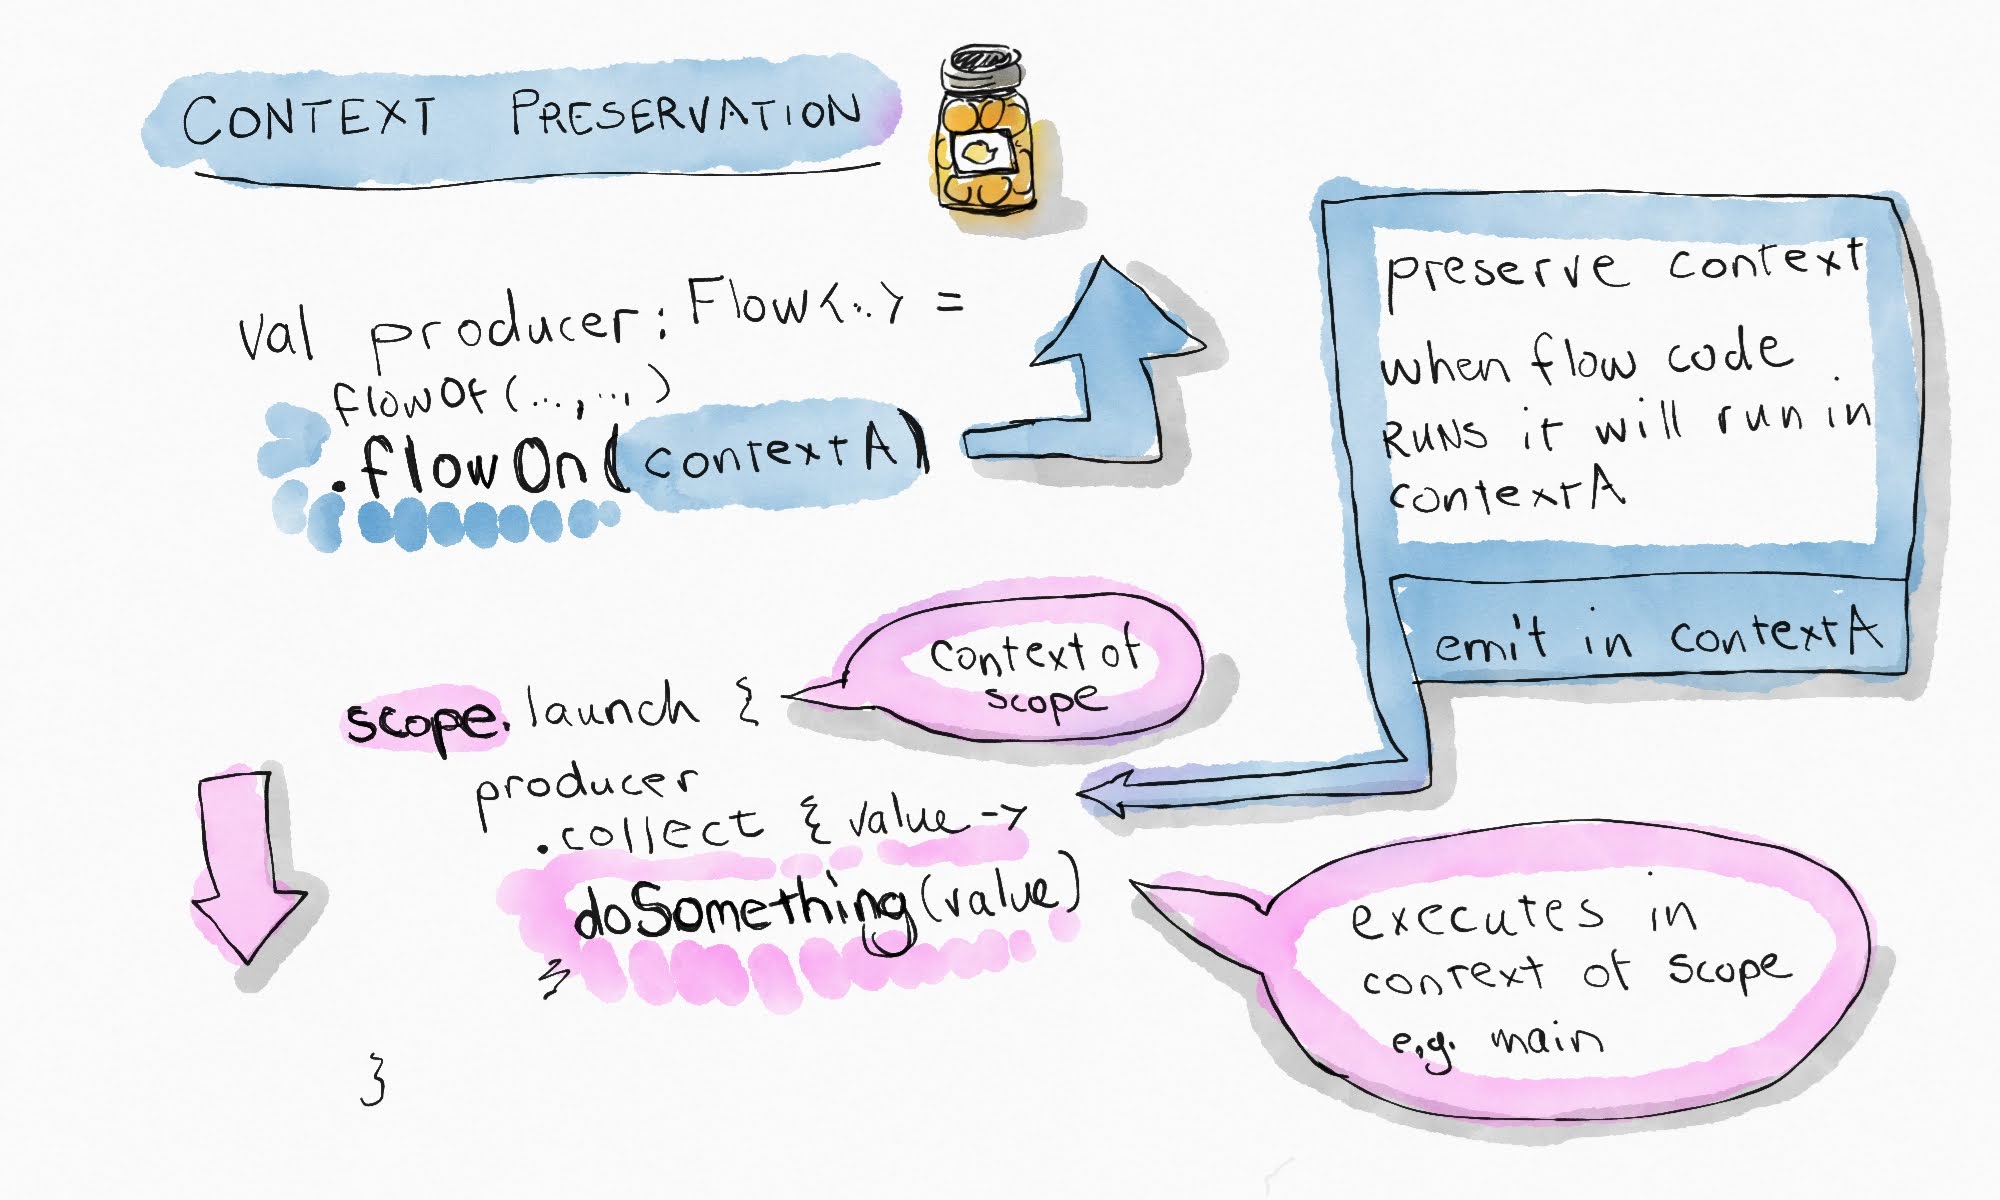 CONTEXT PRESERVATION
val producer: Flow<..> =
flowOf(...,...)
.flowOn(contextA)
preserve context
when flow code
RUNS it will run in
contextA
emit in contextA
context of
scope
scope.launch {
producer
.collect { value ->
doSomething(value)
}
}
executes in
context of scope
e.g. main